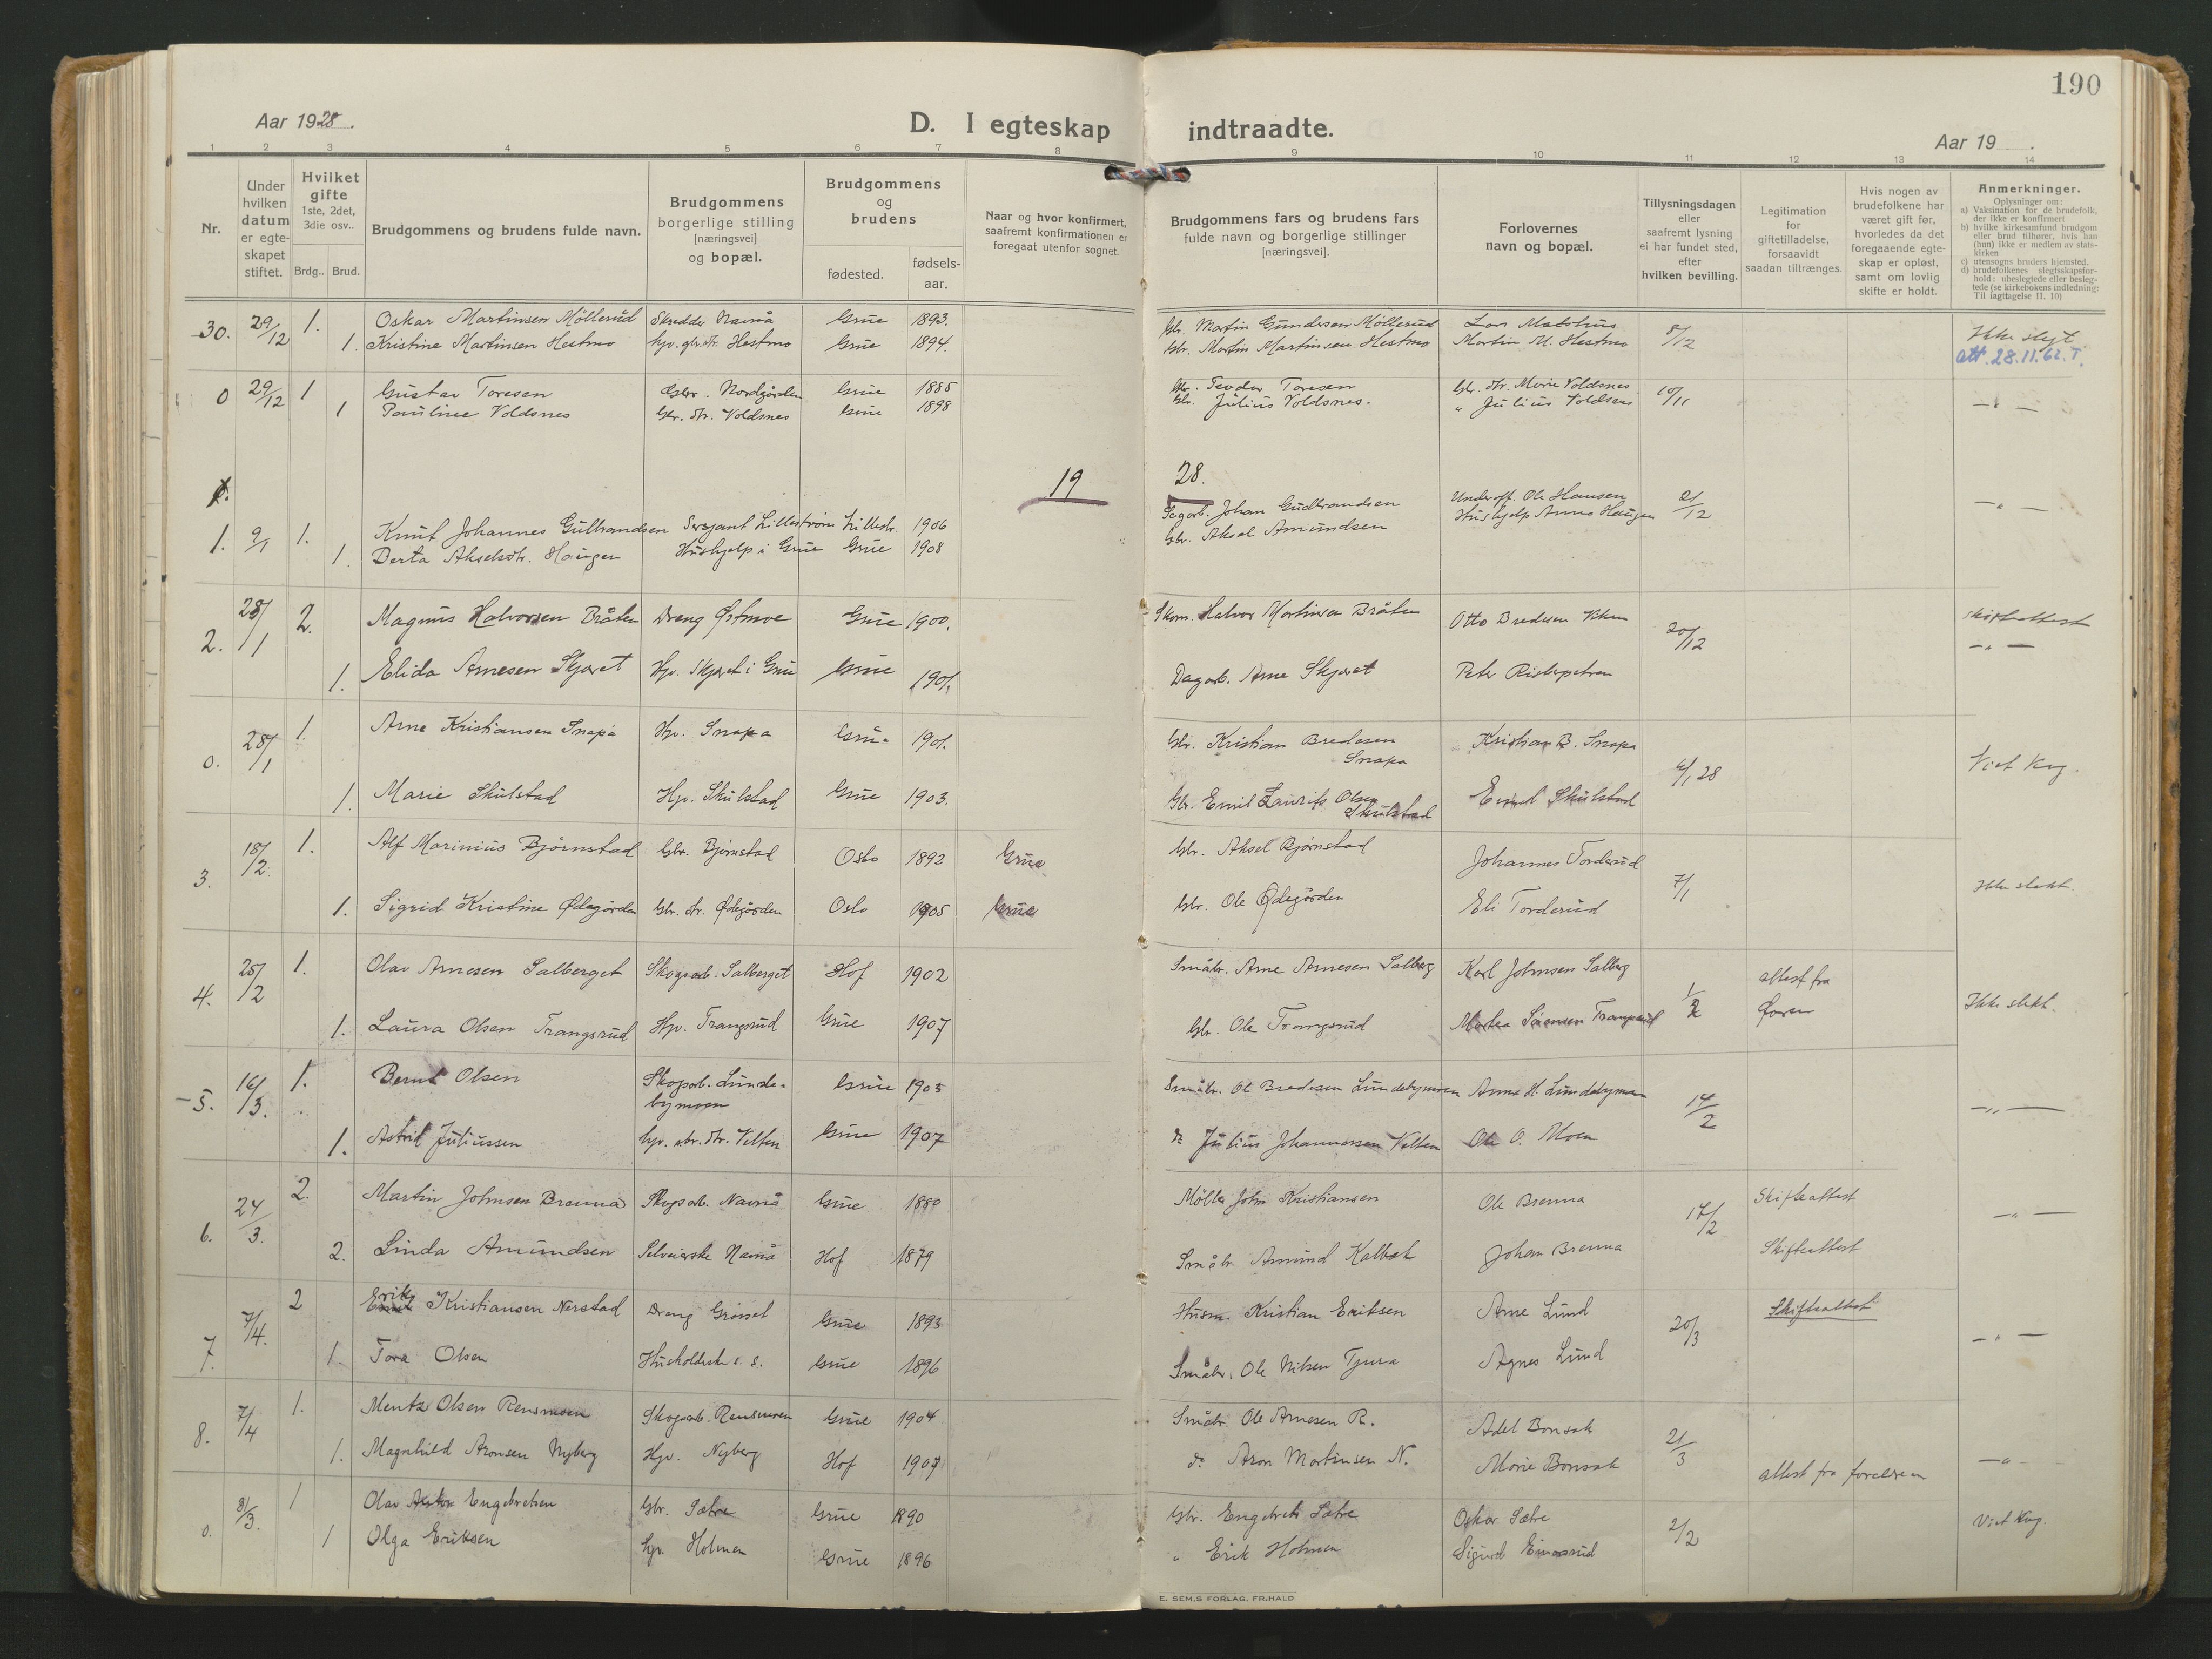 190
Aar 1928.
D. I egteskap indtraadte.
Aar 19 .
1 2 3 4 5 6 7 8 9 10 11 12 13 14
Nr.
Under hvilken datum er egte-skapet stiftet.
Hvilket gifte 1ste, 2det, 3die osv..
Brdg.. Brud.
Brudgommens og brudens fulde navn.
Brudgommens borgerlige stilling [næringsvei] og bopæl.
Brudgommens og brudens
fødested. fødsels-aar.
Naar og hvor konfirmert, saafremt konfirmationen er foregaat utenfor sognet.
Brudgommens fars og brudens fars fulde navn og borgerlige stillinger [næringsvei].
Forlovernes navn og bopæl.
Tillysningsdagen eller saafremt lysning ei har fundet sted, efter hvilken bevilling.
Legitimation for giftetilladelse, forsaavidt saadan tiltrænges.
Hvis nogen av brudefolkene har været gift før, hvorledes da det foregaaende egte-skap er opløst, samt om lovlig skifte er holdt.
Anmerkninger.
Oplysninger om:
a) Vaksination for de brudefolk, der ikke er konfirmert
b) hvilke kirkesamfund brudgom eller brud tilhører, hvis han (hun) ikke er medlem av stats-kirken
c) utensogns bruders hjemsted.
d) brudefolkenes slegtsskapsfor-hold: ubeslegtede eller besleg-tede (se kirkebokens indledning: Til iagttagelse II. 10)
30. 29/12 1. Oskar Martinsen Möllerud Skredder Navnå Grue 1893. Gbr. Martin Gundersen Möllerud 8/12 Ikke slegt
1. Kristine Martinsen Hestmo hjv. gbr.dtr. Hestmo Grue 1894. Gbr. Martin Martinsen Hestmo Martin M. Hestmo att. 28.11.62.T.
0 29/12 1 Gustav Toresen Gbr. Nordgården Grue 1885 Gbr. Toresen Gbr. dtr. Marie Voldsnes 10/11
1 Pauline Voldsnes Gbr. dtr. Voldsnes Grue 1898 Gbr. Julius Voldsnes. " Julius Voldsnes — " —
19 28.
1. 9/1 1. Knut Johannes Gulbrandsen Sersjant Lilleström Lillestr. 1906 Johan Gudbrandsen Underoff. Ole Hansen 21/12 — " —
1. Berta Akselsdtr. Haugen Hushjelp i Grue Grue 1908 Gbr. Aksel Amundsen Hushjelp Anna Haugen
2. 28/1 2. Magnus Halvorsen Bråten Dreng Østmoe Grue 1900. Skom. Halvor Martinsen Bråten Otto Bredesen 20/12 skifteattest
1. Elida Arnesen Skjæret Hjv. Skjæret i Grue Grue 1901. Dagarb. Arne Skjæret Peter — " —
0. 28/1 1. Arne Kristiansen Snapa Hjv. Snapa Grue 1901. Gbr. Kristian Bredesen Snapa Kristian B. Snapa 28 Viet Kvg.
1. Marie Skulstad Hjv. Skulstad Grue 1903. Gbr. Emil Laurits Olsen Skulstad Skulstad
3. 18/2. 1. Alf Marinius Bjørnstad Gbr. Bjørnstad Oslo 1892 Grue Gbr. Aksel Bjørnstad Johannes Torderud 7/1 Ikke slekt.
1. Sigrid Kristine Ødegården Gbr. dtr. Ødegården Oslo 1905 Grue Gbr. Ole Ødegården Eli Torderud
4. 25/2 1. Olav Arnesen Salberget Skogsarb. Salberget Hof 1902 Småbr. Arne Arnesen Salberg Karl Johnsen Salberg attest fra Ikke slekt.
1. Laura Olsen Trangsrud Hjv. Trangsrud Grue 1907 Gbr. Ole Trangsrud Trangsrud
5. 16/3. 1. Bernt Olsen Skogsarb. Lundebymoen Grue 1905 Småbr. Ole Bredesen Lundebymoen Anna H. Lundebymoen 14/2 — " —
1. Astrid Juliussen hjv. sbr. dtr. Velten Grue 1907 do Julius Johannessen Velten Ole O. Moen
6. 24/3. 2. Martin Johnsen Brenna Skogsarb. Navnå Grue 1880 Møller John Kristiansen Ole Brenna 17/2 Skifteattest — " —
2. Linda Amundsen Selveierske Navnå Hof 1879 Småbr. Amund Johan Brenna Skifteattest
7. 7/4. 2 Erik Kristiansen Nerstad Dreng Grue 1893 Husm. Kristian Eriksen Arne Lund 20/3 Skifteattest — " —
1. Tora Olsen Husholderske s. s. Grue 1896 Småbr. Ole Nilsen Tjura Agnes Lund
8. 7/4 1. Mentz Olsen Rensmoen Skogsarb. Rensmoen Grue 1904 Småbr. Ole Arnesen R. Adel Bonsak 21/3
1. Magnhild Aronsen Nyberg Hjv. Nyberg Hof 1907 do Aron Martinsen N. Marie Bonsak attest fra foreldrene — " —
0. 8/3. 1 Olav Engebretsen Gbr. Sætre Grue 1890 Gbr. Engebret Sætre Oskar Sætre 2/2 Viet Kvg.
1 Olga Eriksen hjv. Holmen Grue 1896 " Erik Holmen Sigurd
E. SEM.S FORLAG, FR.HALD